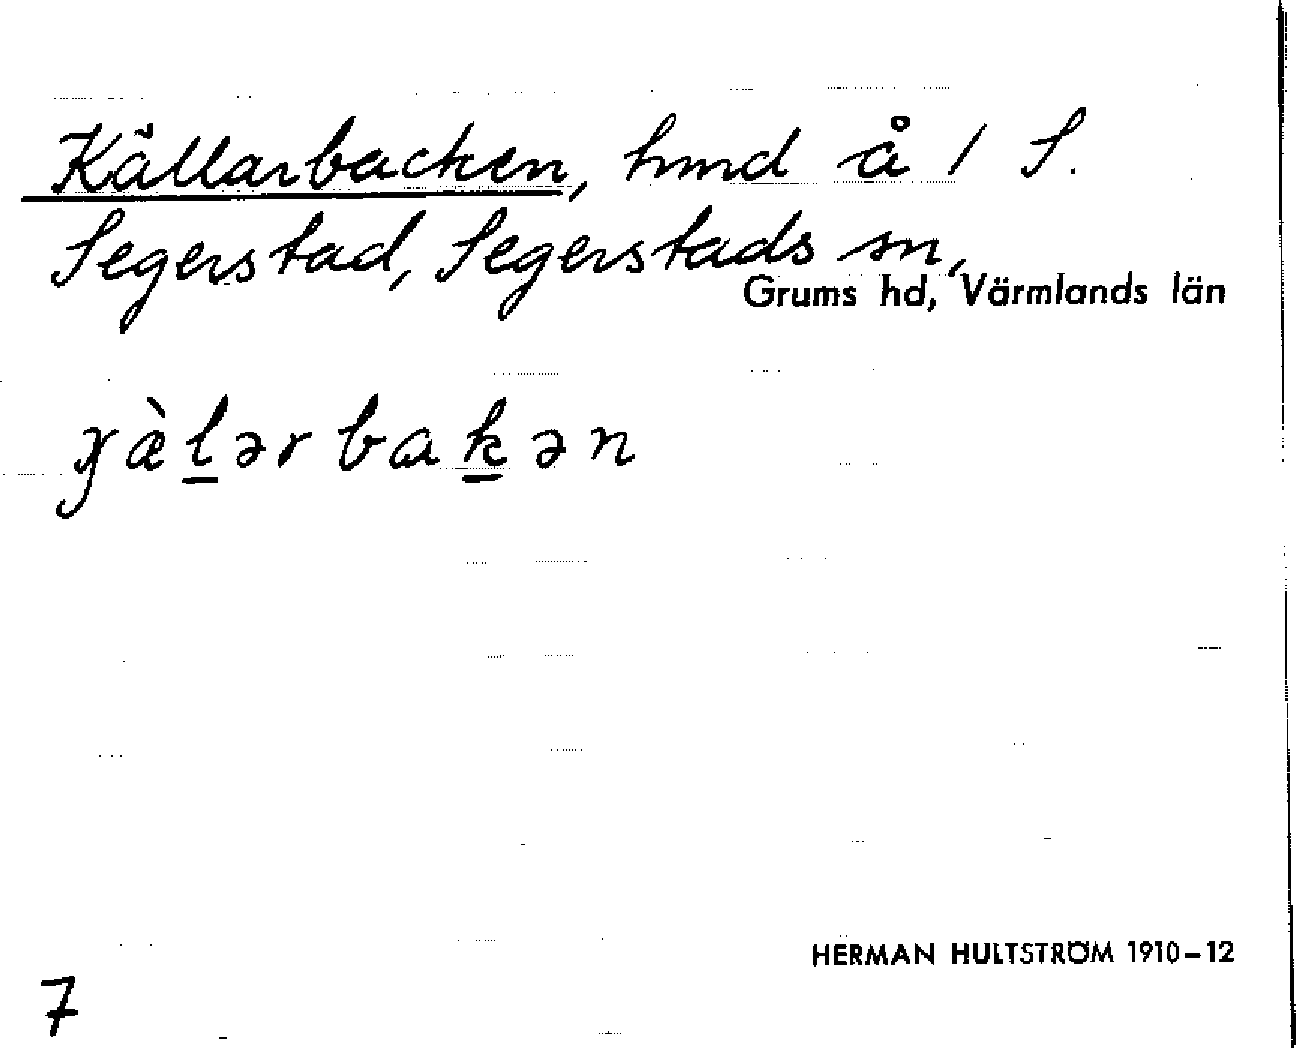 Källarbacken, hmd å 1 S.
Segerstad, Segerstads sn,
Grums hd, Värmlands län
ɣæ̀l̲ərbak̲ən
HERMAN HULTSTRÖM 1910–12
7